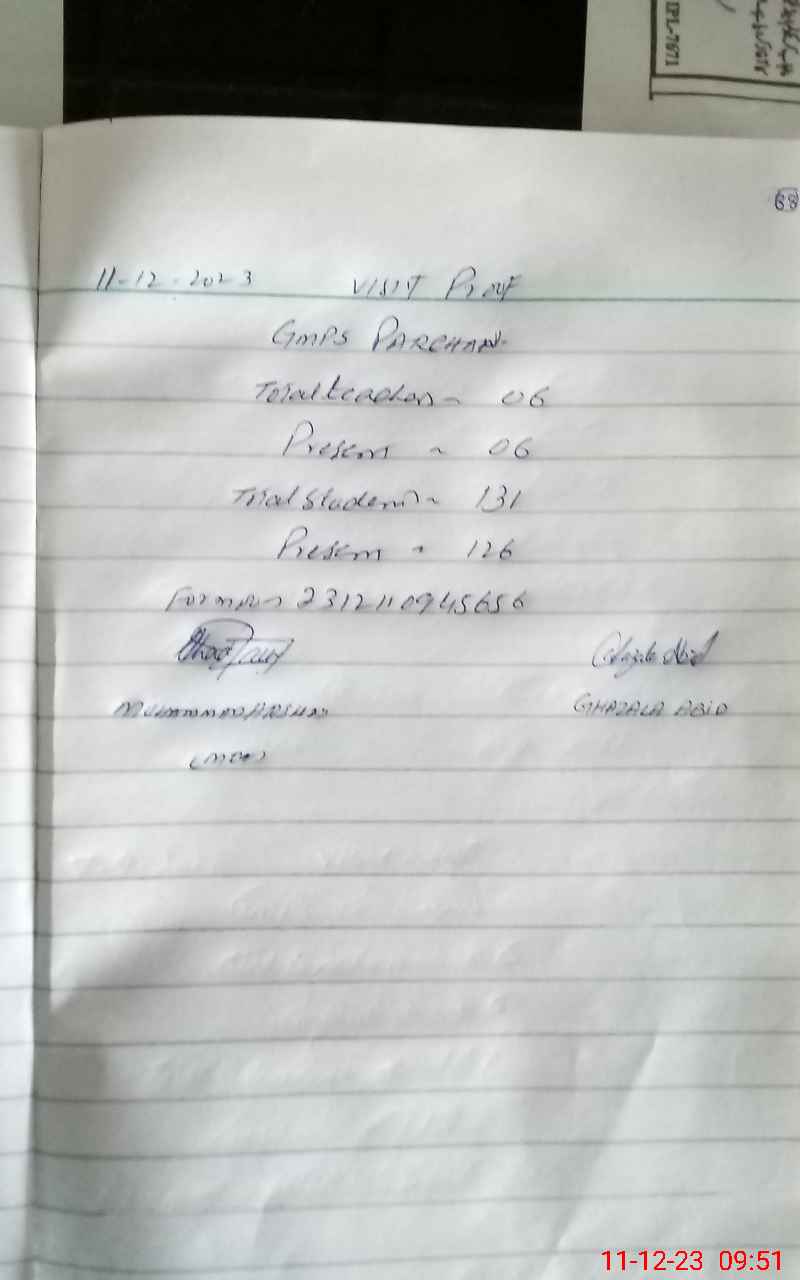 IPL-7671
88
11-12-2023 VISIT Proof
GMPS PARCHAN
Total teachers - 06
Present - 06
Total Student - 131
Present - 126
2312110945656
Ghazala Abid
MUHAMMAD ARSHAD GHAZALA ABID
(MEA)
11-12-23 09:51